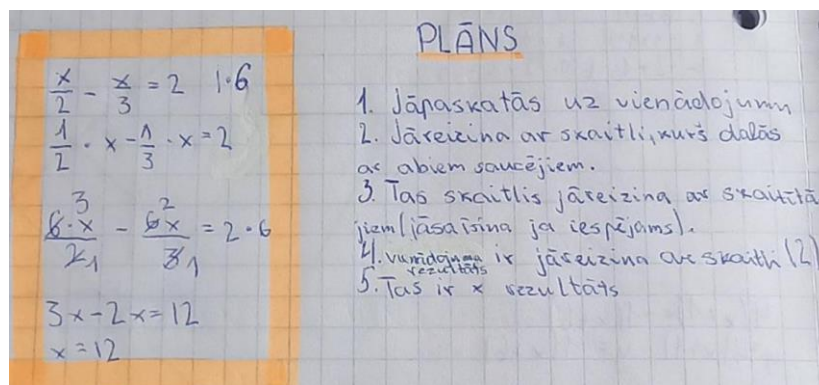 x/2 - x/3 = 2 |·6
1/2 · x - 1/3 · x = 2
3 2
6·x/2 1 - 6x/3 1 = 2·6
3x - 2x = 12
x = 12
PLĀNS
1. Jāpaskatās uz vienādojumu
2. Jāreizina ar skaitli, kurš dalās
ar abiem saucējiem.
3. Tas skaitlis jāreizina ar skaitītā
jiem (jāsaīsina ja iespējams).
4. rezultāts ir jāreizina ar skaitli (2)
5. Tas ir x rezultāts